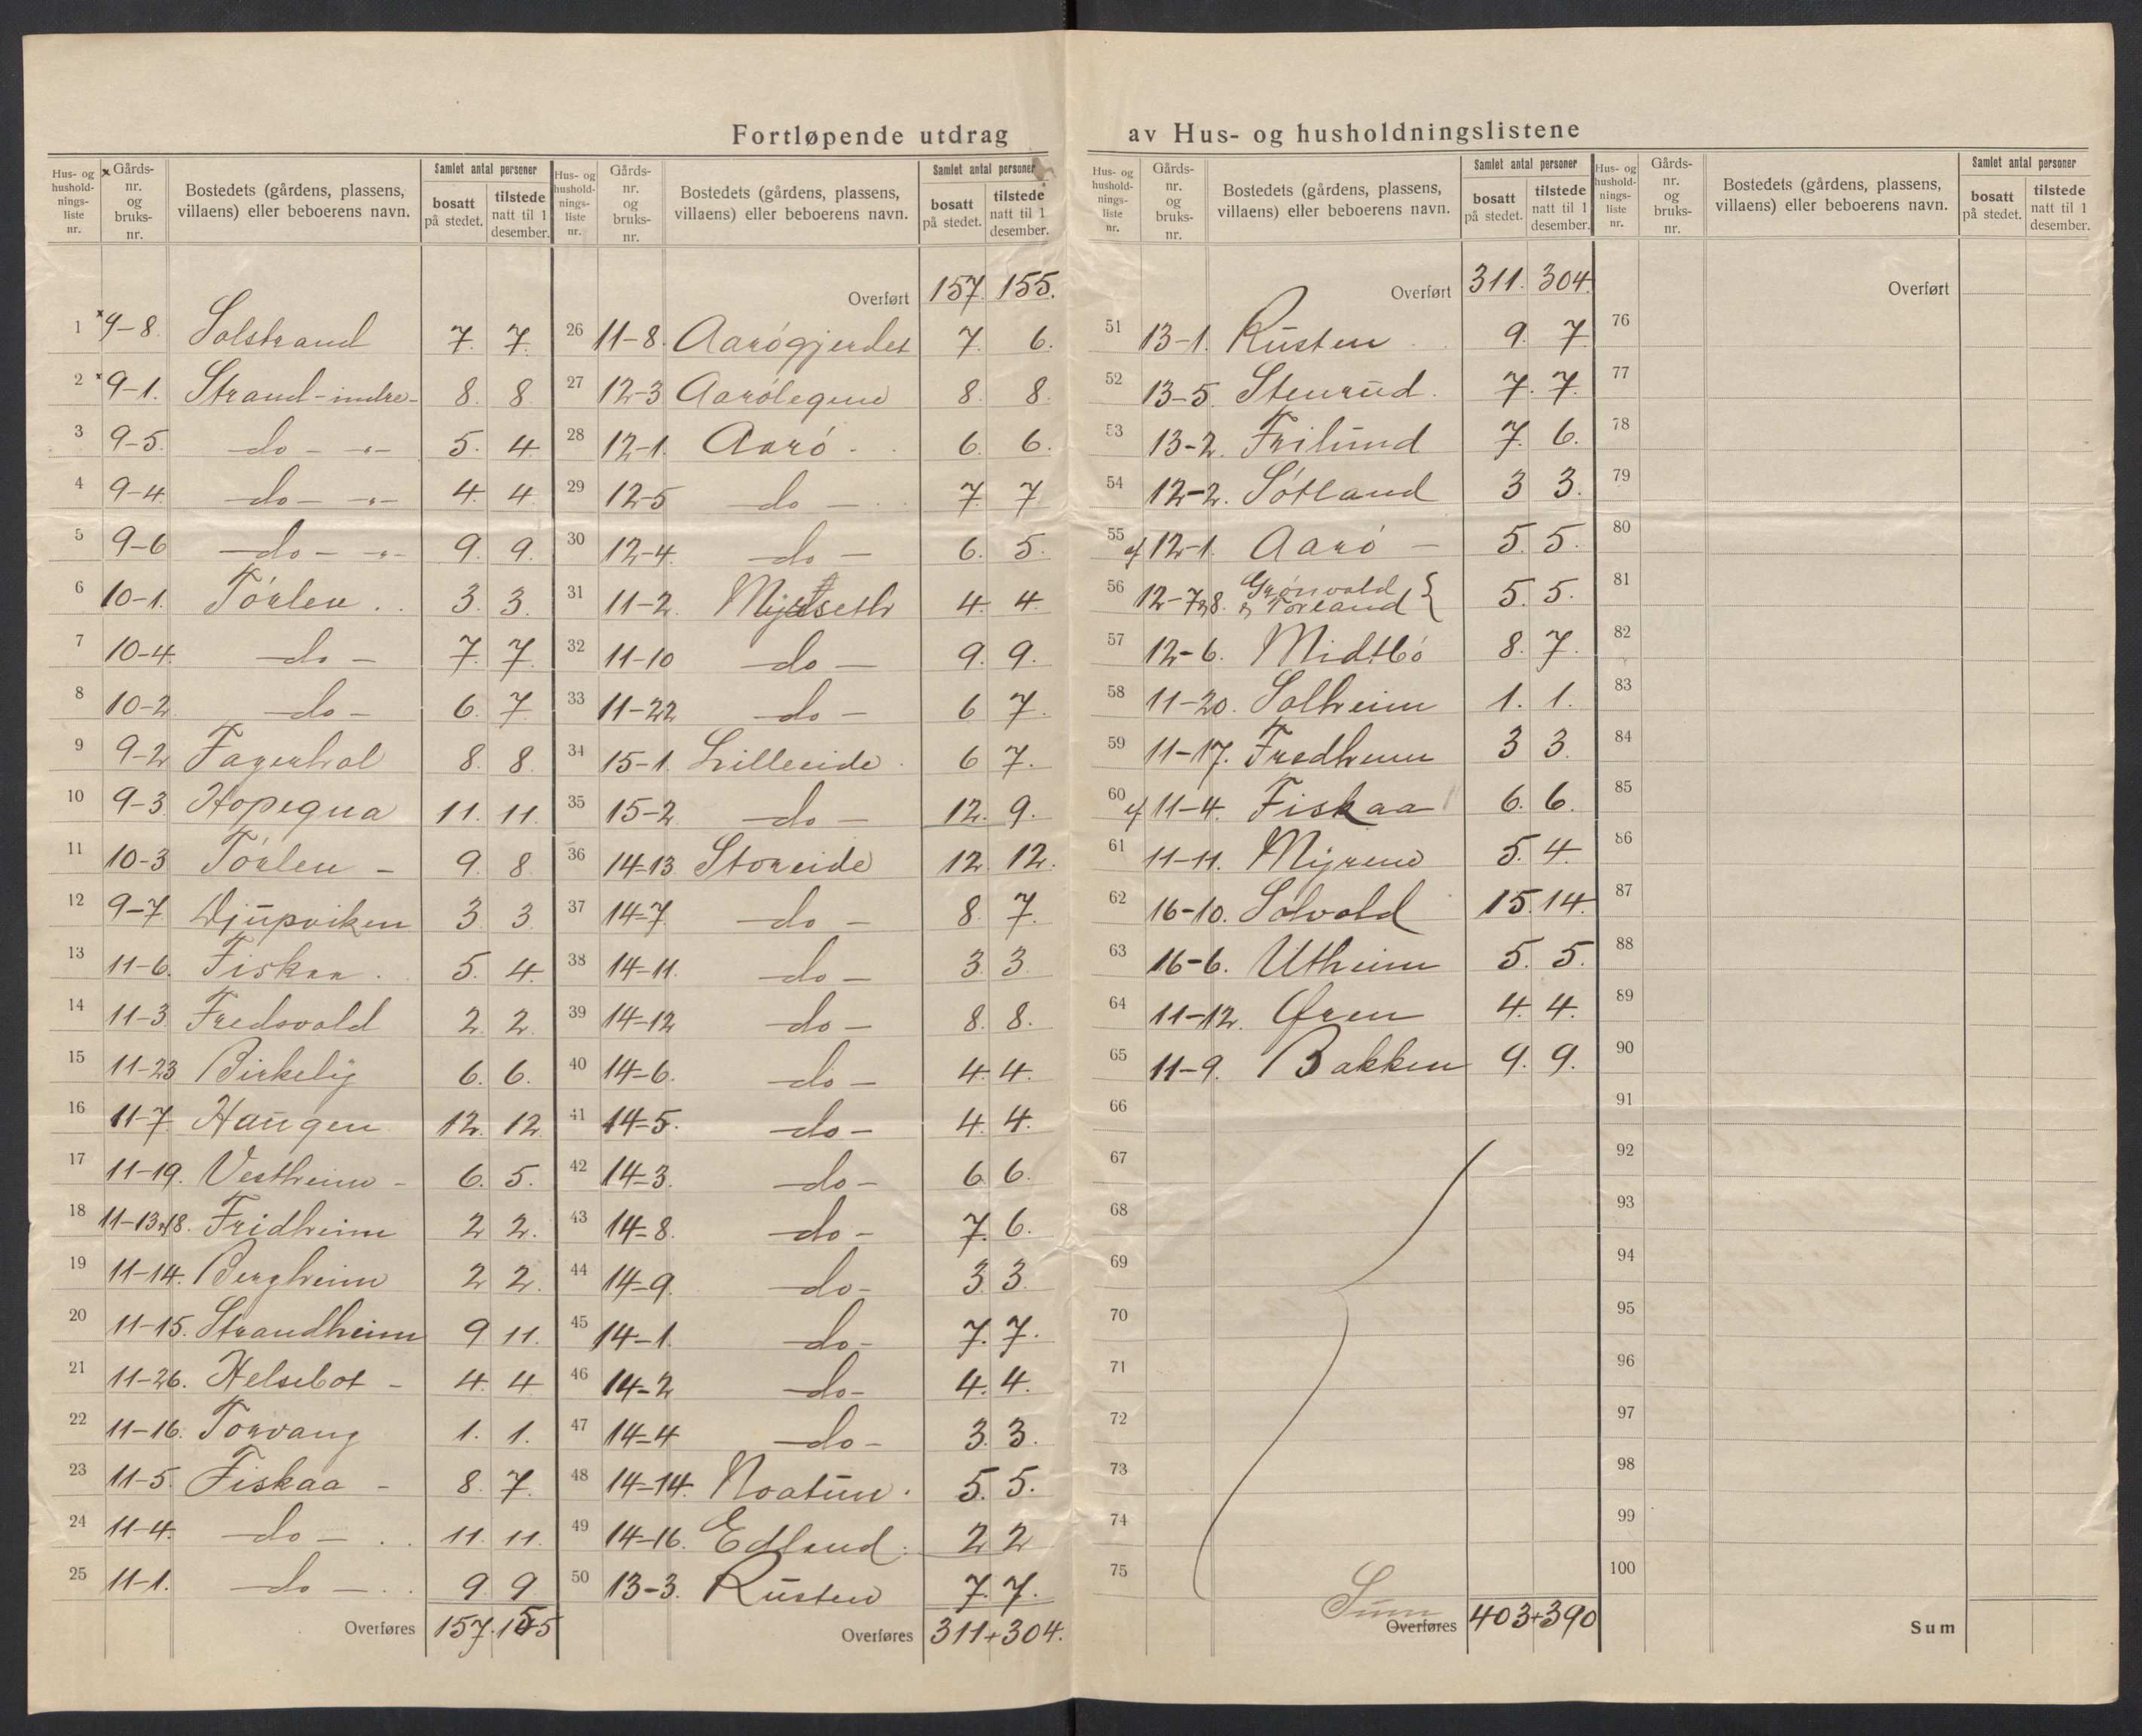 Fortløpende utdrag av Hus- og husholdningslistene
Hus- og hushold- nings- liste nr. × Gårds- nr. og bruks- nr. Bostedets (gårdens, plassens, villaens) eller beboerens navn. Samlet antal personer bosatt på stedet. tilstede natt til 1 desember.
1 ×9-8. Solstrand 7. 7.
2 ×9-1. Strand-indre- 8. 8
3 9-5. do - -"- 5. 4
4 9-4 do - -"- 4. 4
5 9-6 do - -"- 9. 9.
6 10-1. Tørlen . . 3. 3.
7 10-4. do - 7. 7.
8 10-2 do - 6. 7
9 9-2 Fagerhol 8. 8
10 9-3 Hopegua 11. 11.
11 10-3 Tørlen - 9. 8
12 9-7 Djupviken 3. 3.
13 11-6. Fiskaa . 5. 4.
14 11-3 Fredsvold 2. 2.
15 11-23 Birkelig 6. 6.
16 11-7 Haugen 12. 12
17 11-19. Vestheim - 6. 5.
18 11-13+18. Fridheim 2 2.
19 11-14. Bergheim 2 2.
20 11-15. Strandheim 9 11.
21 11-26. Helsebot - 4. 4
22 11-16. Torvang 1. 1.
23 11-5. Fiskaa - 8. 7.
24 11-4. do - . 11. 11.
25 11-1. do - . . 9. 9
Overføres 157. 155
Hus- og hushold- nings- liste nr. Gårds- nr. og bruks- nr. Bostedets (gårdens, plassens, villaens) eller beboerens navn. Samlet antal personer bosatt på stedet. tilstede natt til 1 desember.
Overført 157. 155.
26 11-8. Aarøgjerdet 7. 6.
27 12-3 Aarølegene 8. 8.
28 12-1. Aarø - . 6. 6.
29 12-5 do - . 7. 7
30 12-4. do - 6. 5.
31 11-2. Myrsseth 4. 4.
32 11-10 do - 9. 9.
33 11-22 do - 6 7.
34 15-1. Lilleeide . 6 7.
35 15-2 do - 12. 9.
36 14-13 Storeide 12. 12.
37 14-7 do - 8. 7.
38 14-11. do - 3. 3.
39 14-12 do - 8. 8.
40 14-6. do - 4. 4.
41 14-5. do - 4. 4.
42 14-3. do - 6. 6.
43 14-8. do - 7. 6.
44 14-9. do - 3. 3.
45 14-1. do - 7. 7.
46 14-2 do - 4. 4.
47 14-4 do - 3. 3.
48 14-14. Noatun . 5. 5.
49 14-16. Edland . 2 2
50 13-3. Rusten 7. 7.
Overføres 311+304.
Hus- og hushold- nings- liste nr. Gårds- nr. og bruks- nr. Bostedets (gårdens, plassens, villaens) eller beboerens navn. Samlet antal personer bosatt på stedet. tilstede natt til 1 desember.
Overført 311. 304.
51 13-1. Rusten 9. 7
52 13-5. Stenrud. 7. 7.
53 13-2. Frilund 7. 6.
54 12-2. Søtland 3 3.
55 12-1. Aarø - 5. 5.
56 12-7&8. Grønvold & Torland } 5. 5.
57 12-6. Midtbø 8. 7.
58 11-20. Solheim 1. 1.
59 11-17. Fredheim 3 3.
60 11-4. Fiskaa 6. 6.
61 11-11. Myrene 5. 4.
62 16-10. Solvold 15. 14.
63 16-6. Utheim 5. 5.
64 11-12. Øren 4. 4.
65 11-9. Bakken 9. 9.
66
67
68
69
70
71
72
73
74
75
Sum
Overføres 403+390
Hus- og hushold- nings- liste nr. Gårds- nr. og bruks- nr. Bostedets (gårdens, plassens, villaens) eller beboerens navn. Samlet antal personer bosatt på stedet. tilstede natt til 1 desember.
Overført
76
77
78
79
80
81
82
83
84
85
86
87
88
89
90
91
92
93
94
95
96
97
98
99
100
Sum